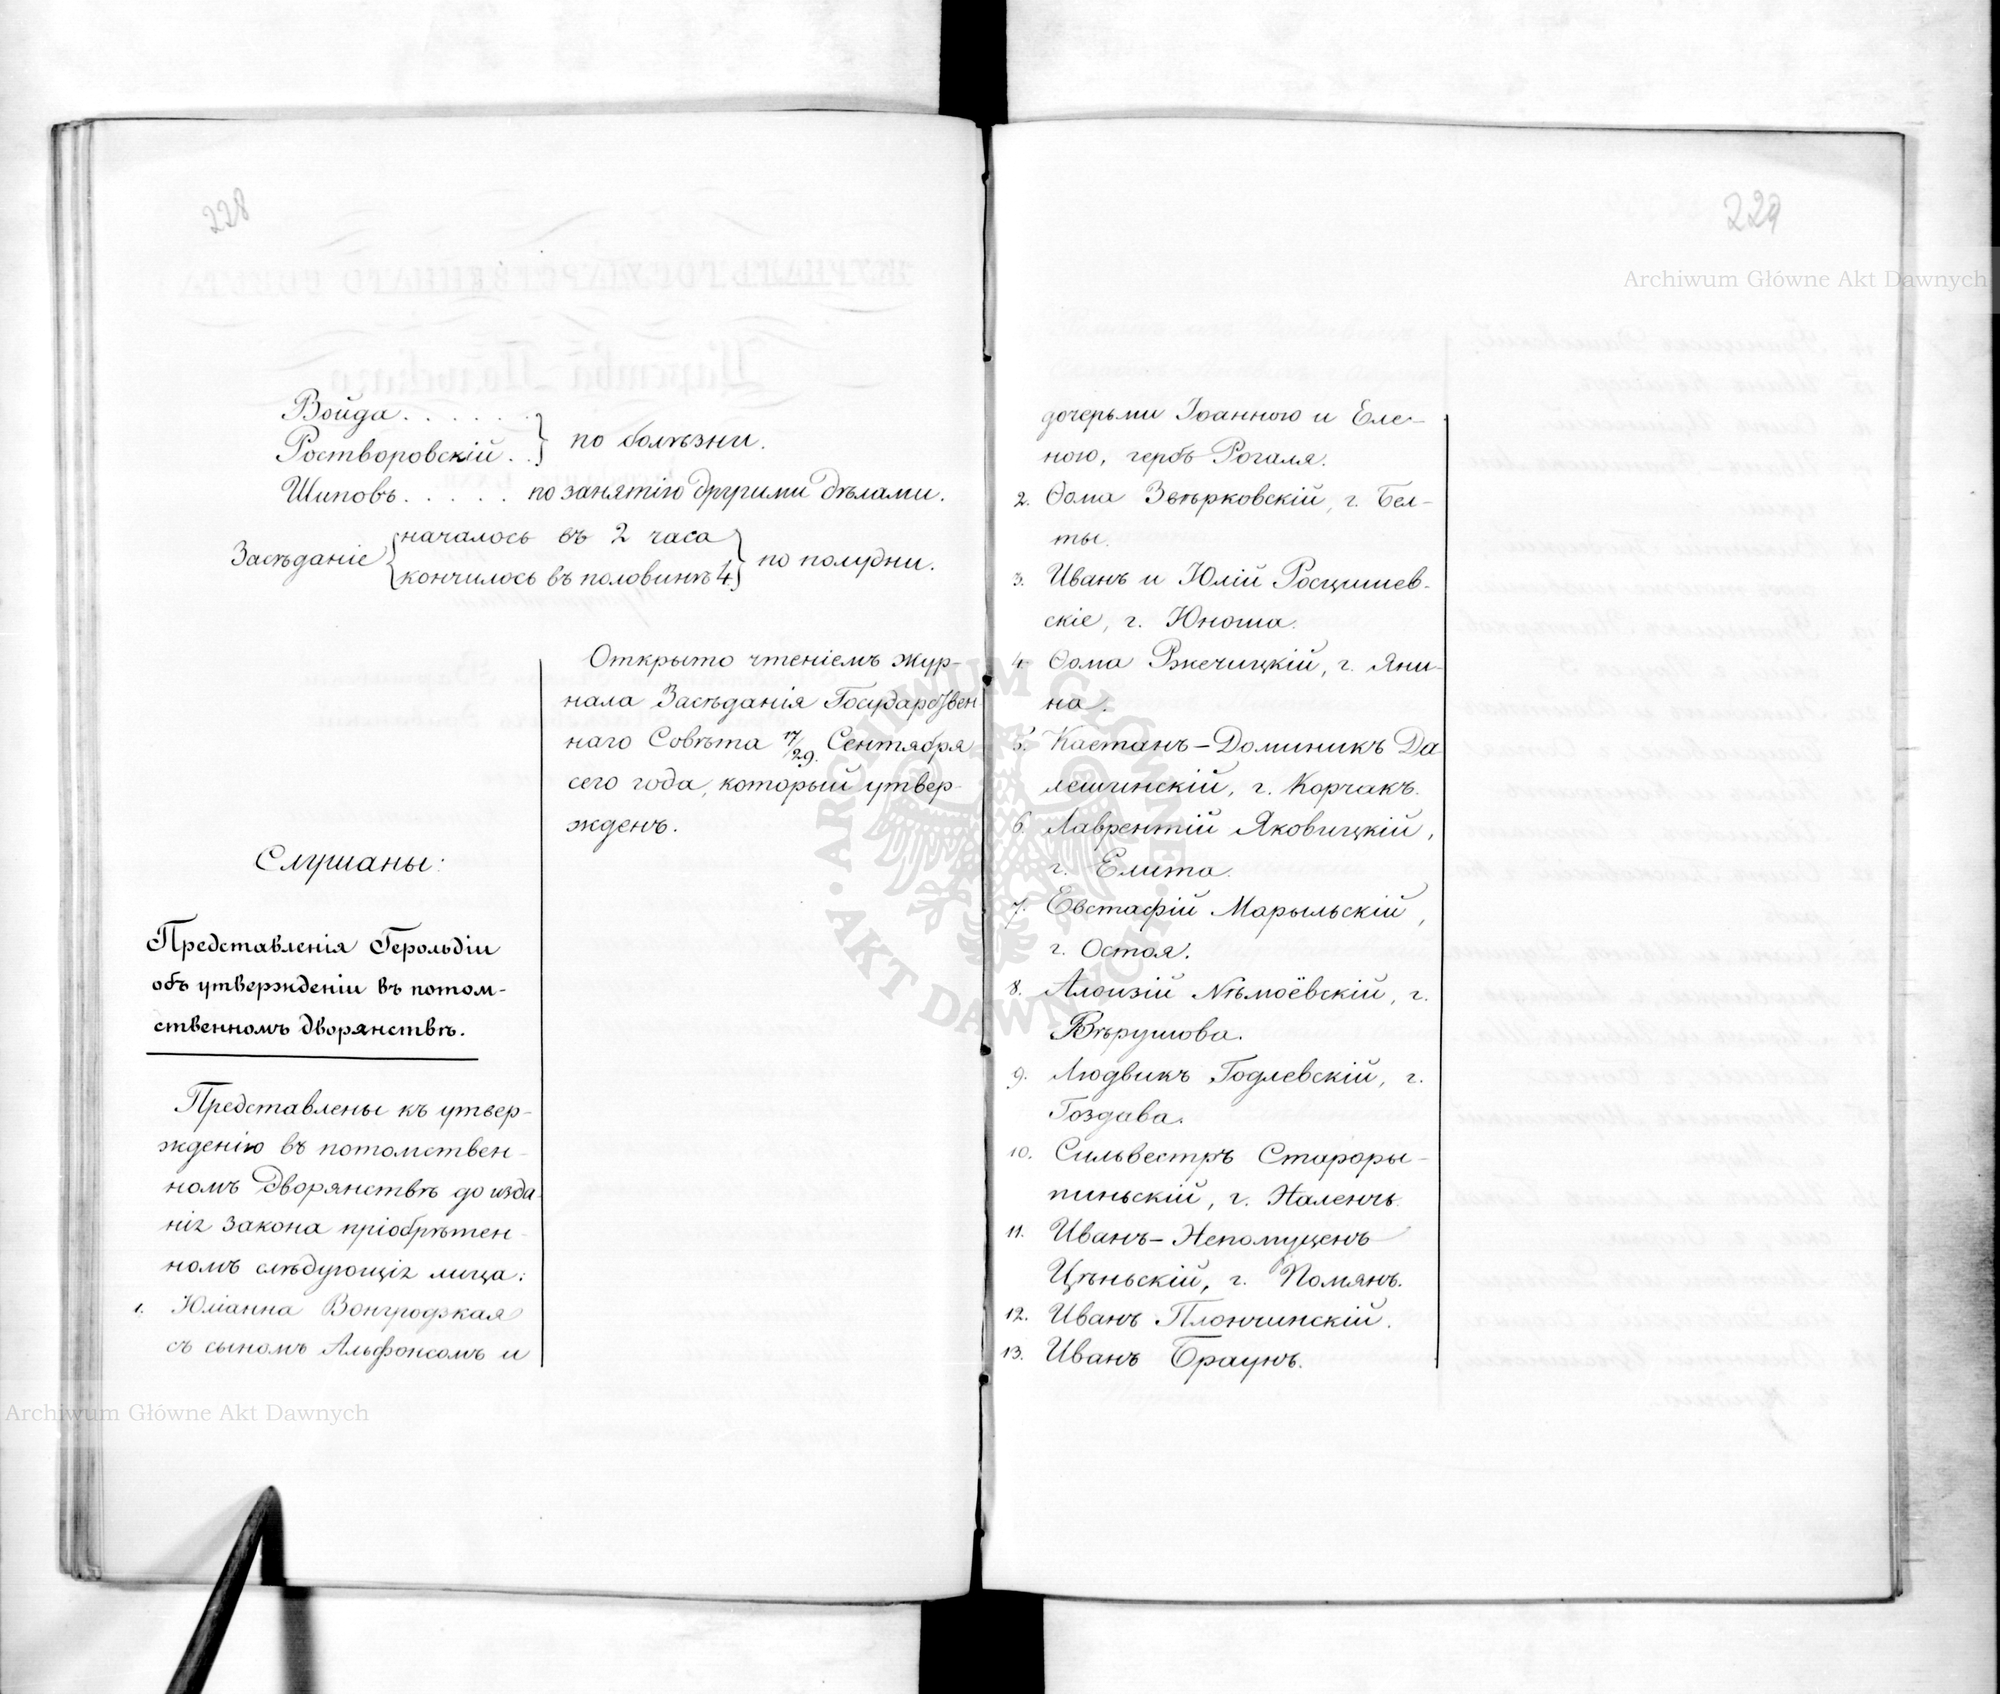 228
Войда . . . . . .
Ростворовскій . . } по болѣзни.
Шиповъ . . . . . по занятію другими дѣлами.
Засѣданіе { началось въ 2 часа
кончилось въ половинѣ 4 } по полудни.
Открыто чтеніемъ жур-
нала Засѣданія Государствен
наго Совѣта 17/29. Сентября
сего года, который утвер-
жденъ.
Слушаны:
Представленія Герольдіи
объ утвержденіи въ потом-
ственномъ дворянствѣ.
Представлены къ утвер-
жденію въ потомствен-
номъ Дворянствѣ до изда-
нія Закона пріобрѣтен-
номъ слѣдующія лица:
1. Юліанна Вонгродзкая
съ сыномъ Альфонсомъ и
229
дочерьми Іоанною и Еле-
ною, гербъ Рогаля.
2. Ѳома Звѣрковскій, г. Бел-
ты.
3. Иванъ и Юлій Росцишев-
скіе, г. Юноша.
4. Ѳома Ржечицкій, г. Яни-
на.
5. Каетанъ-Доминикъ Да
лешинскій, г. Корчакъ.
6. Лаврентій Яковицкій,
г. Елита.
7. Евстафій Марыльскій,
г. Остоя.
8. Алоизій Нѣмоёвскій, г.
Вѣрушова.
9. Людвикъ Годлевскій, г.
Гоздава.
10. Сильвестръ Староры-
пиньскій, г. Наленчъ.
11. Иванъ-Непомуценъ
Цѣньскій, г. Помянъ.
12. Иванъ Плончинскій.
13. Иванъ Браунъ.
Archiwum Główne Akt Dawnych
Archiwum Główne Akt Dawnych
ARCHIWUM GŁÓWNE AKT DAWNYCH